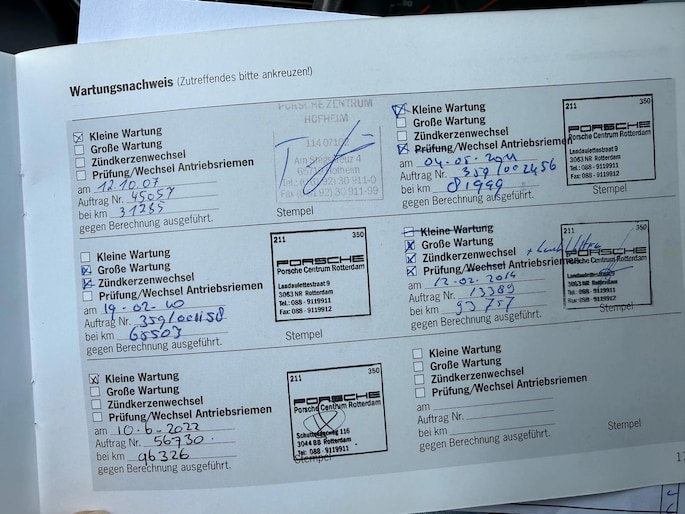 Wartungsnachweis (Zutreffendes bitte ankreuzen!)
Kleine Wartung
Große Wartung
Zündkerzenwechsel
Prüfung/Wechsel Antriebsriemen
am 12.10.07
Auftrag Nr. 45057
bei km 31285
gegen Berechnung ausgeführt.
PORSCHE ZENTRUM
HOFHEIM
Am
65719 Hofheim
Stempel
Kleine Wartung
Große Wartung
Zündkerzenwechsel
Prüfung/Wechsel Antriebsriemen
am 04-05-2011
Auftrag Nr. 359/002456
bei km 81999
gegen Berechnung ausgeführt.
211 350
PORSCHE
Porsche Centrum Rotterdam
Landaulettestraat 9
3063 NR Rotterdam
Tel.: 088 - 9119911
Fax: 088 - 9119912
Stempel
Kleine Wartung
Große Wartung
Zündkerzenwechsel
Prüfung/Wechsel Antriebsriemen
am 19-02-10
Auftrag Nr. 359/001158
bei km 65503
gegen Berechnung ausgeführt.
211 350
PORSCHE
Porsche Centrum Rotterdam
Landaulettestraat 9
3063 NR Rotterdam
Tel.: 088 - 9119911
Fax: 088 - 9119912
Stempel
Kleine Wartung
Große Wartung
Zündkerzenwechsel
Prüfung/Wechsel Antriebsriemen
am 12-02-2014
Auftrag Nr. 13389
bei km 93757
gegen Berechnung ausgeführt.
211 350
PORSCHE
Porsche Centrum Rotterdam
Landaulettestraat 9
3063 NR Rotterdam
Tel.: 088 - 9119911
Fax: 088 - 9119912
Stempel
Kleine Wartung
Große Wartung
Zündkerzenwechsel
Prüfung/Wechsel Antriebsriemen
am 10-6-2022
Auftrag Nr. 56730
bei km 96326
gegen Berechnung ausgeführt.
211 350
PORSCHE
Porsche Centrum Rotterdam
116
3044 BB Rotterdam
Tel: 088 - 9119911
Stempel
Kleine Wartung
Große Wartung
Zündkerzenwechsel
Prüfung/Wechsel Antriebsriemen
am
Auftrag Nr.
bei km
gegen Berechnung ausgeführt.
Stempel